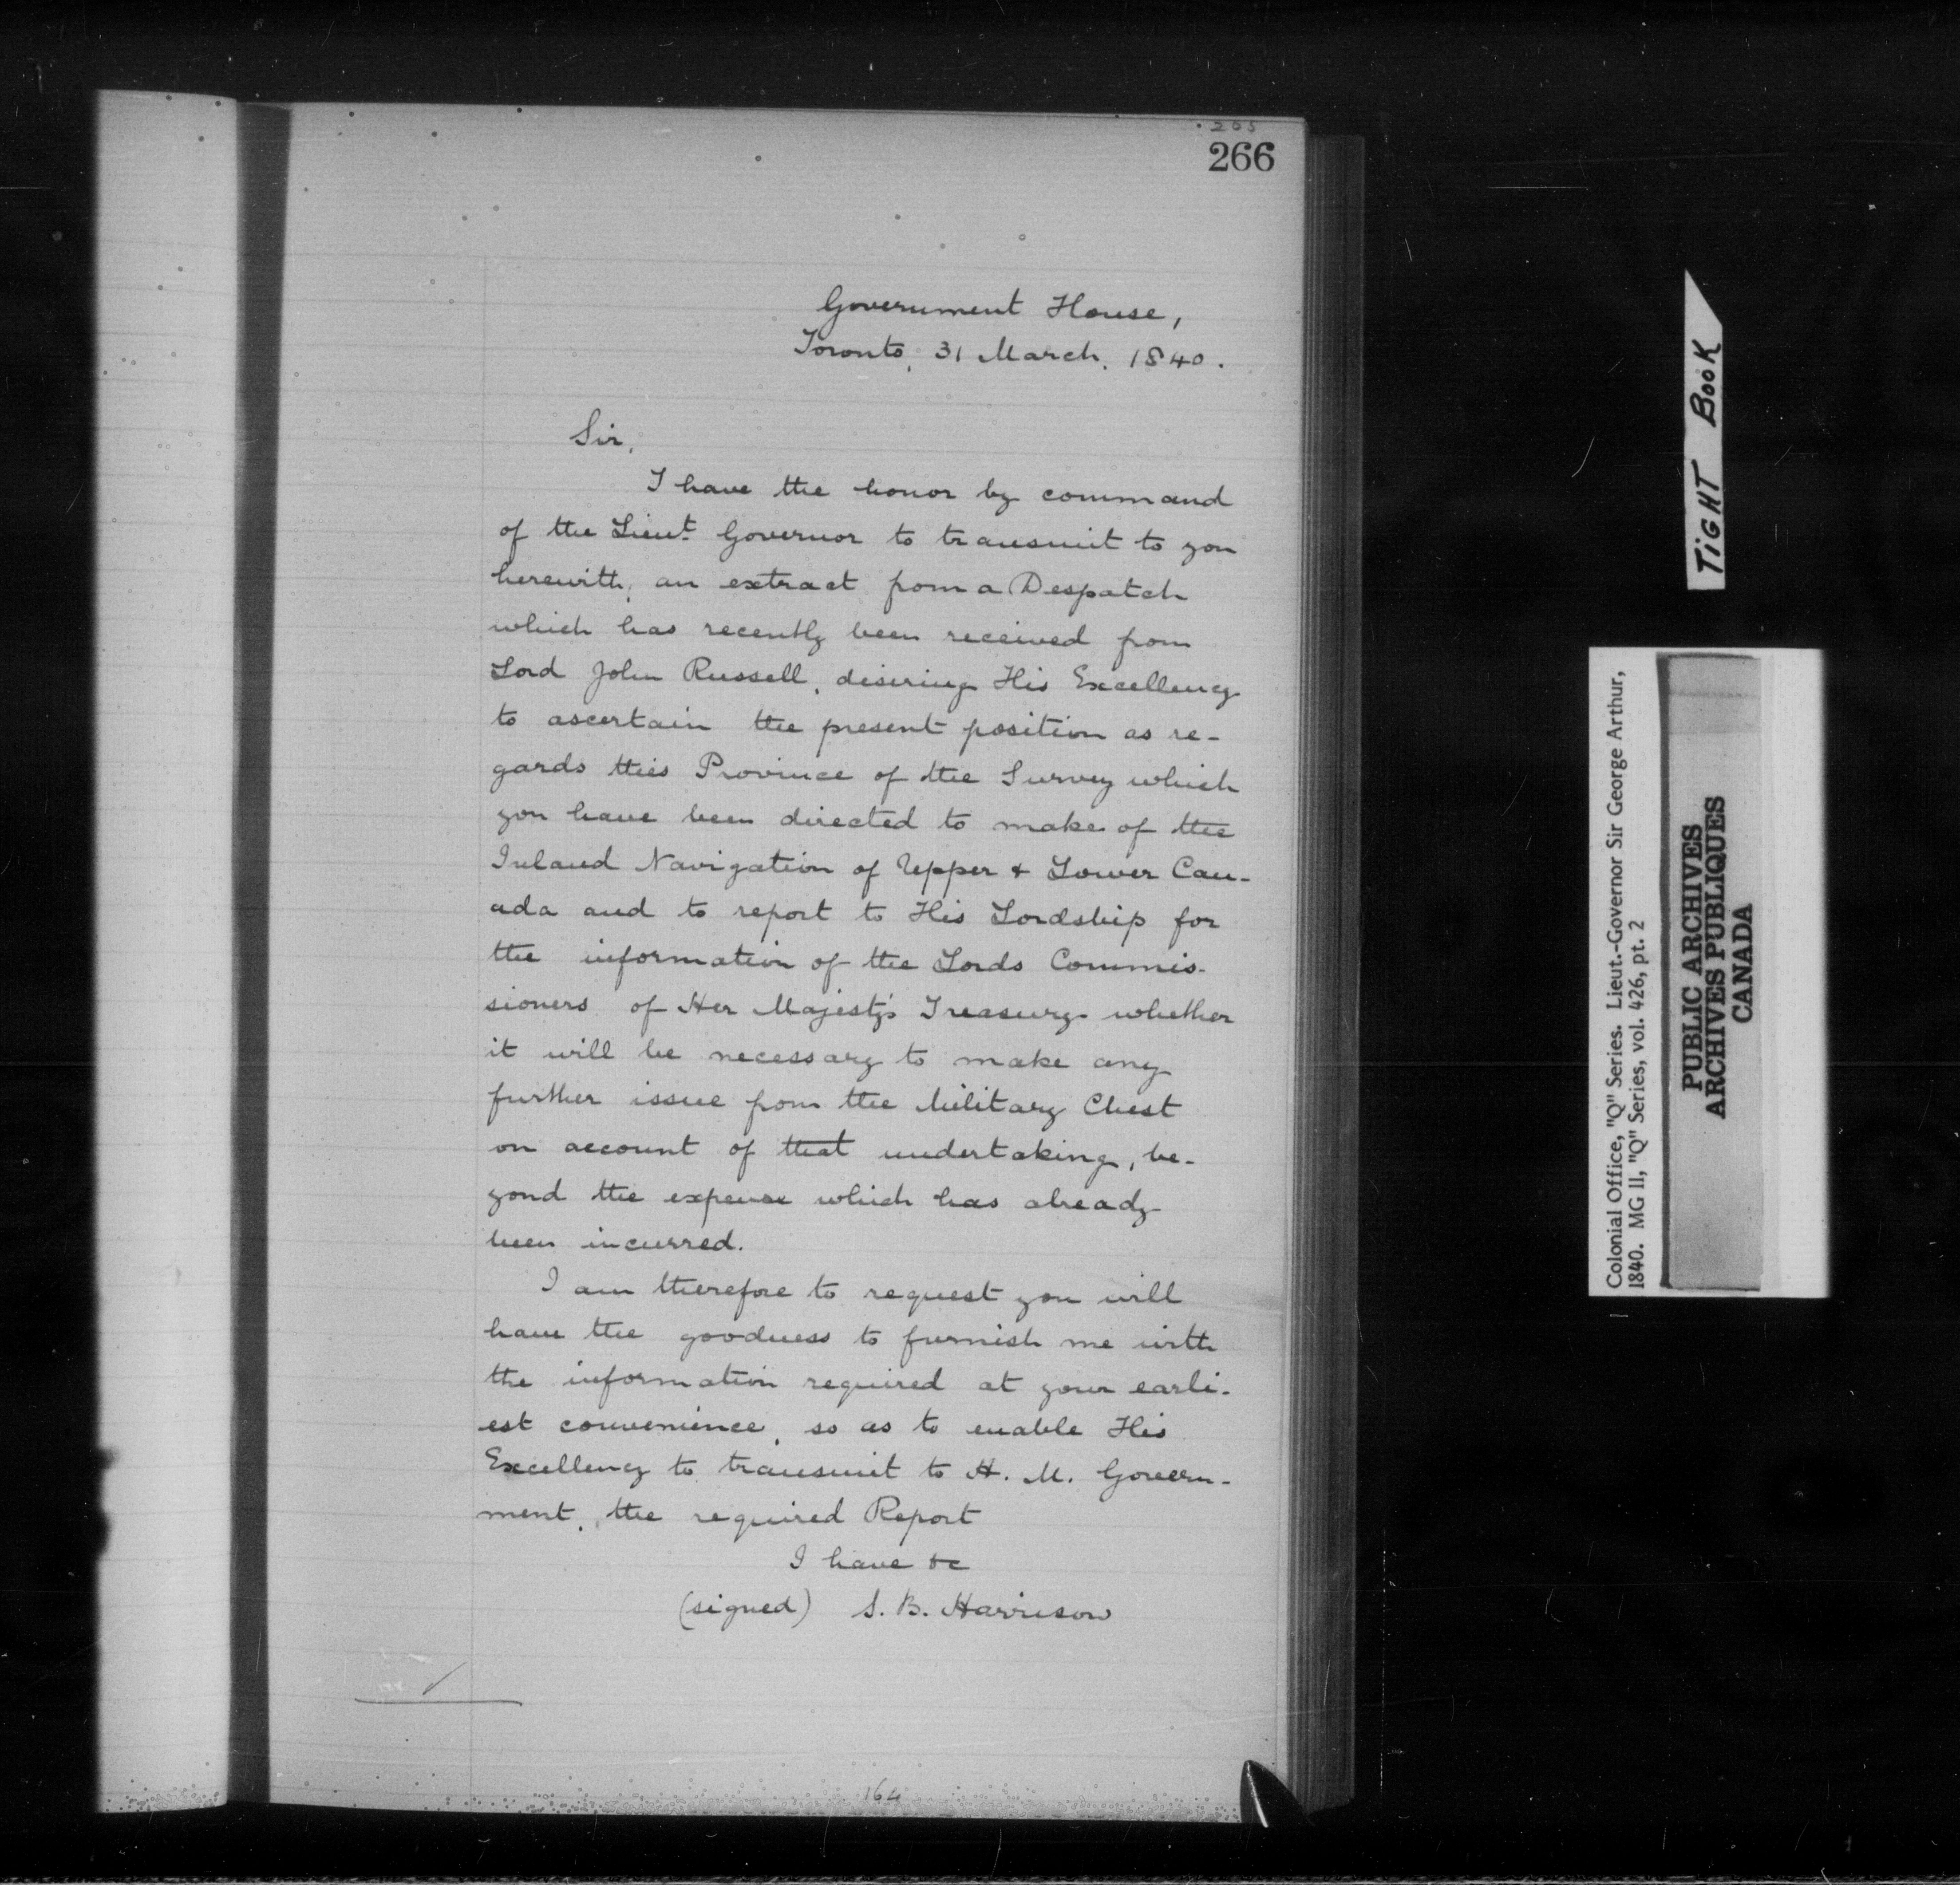 205
266
Government House,
Toronto, 31 March, 1840.
Sir,
I have the honor by command
of the Lieut. Governor to transmit to you
herewith, an extract from a Despatch
which has recently been received from
Lord John Russell, desiring His Excellency
to ascertain the present position as re-
gards this Province of the Survey which
you have been directed to make of the
Inland Navigation of Upper & Lower Can-
ada and to report to His Lordship for
the information of the Lords Commis-
sioners of Her Majesty's Treasury whether
it will be necessary to make any
further issue from the Military Chest
on account of that undertaking, be-
yond the expense which has already
been incurred.
I am therefore to request you will
have the goodness to furnish me with
the information required at your earli-
est convenience, so as to enable His
Excellency to transmit to H. M. Govern-
ment, the required Report
I have &c
(signed) S. B. Harrison
164
TIGHT BOOK
Colonial Office, "Q" Series. Lieut.-Governor Sir George Arthur,
1840. MG II, "Q" Series, vol. 426, pt. 2
PUBLIC ARCHIVES
ARCHIVES PUBLIQUES
CANADA